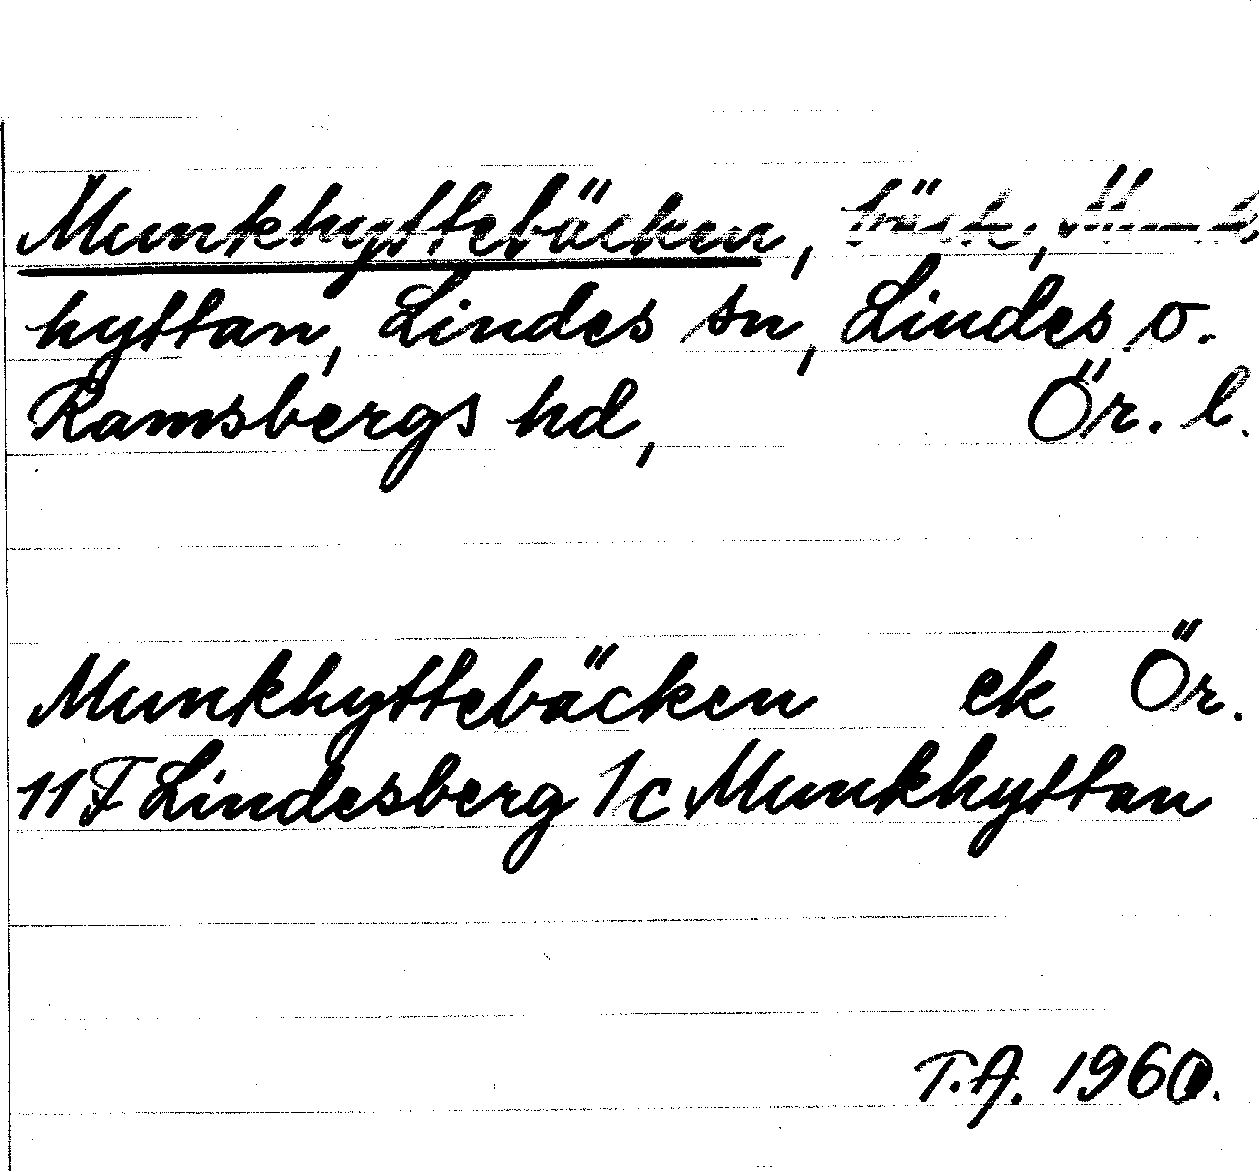 Munkhyttebäcken, bäck, Munk
hyttan, Lindes sn, Lindes o.
Ramsbergs hd, Ör. l.
Munkhyttebäcken ek Ör.
11F Lindesberg 1c Munkhyttan
T.A. 1960.